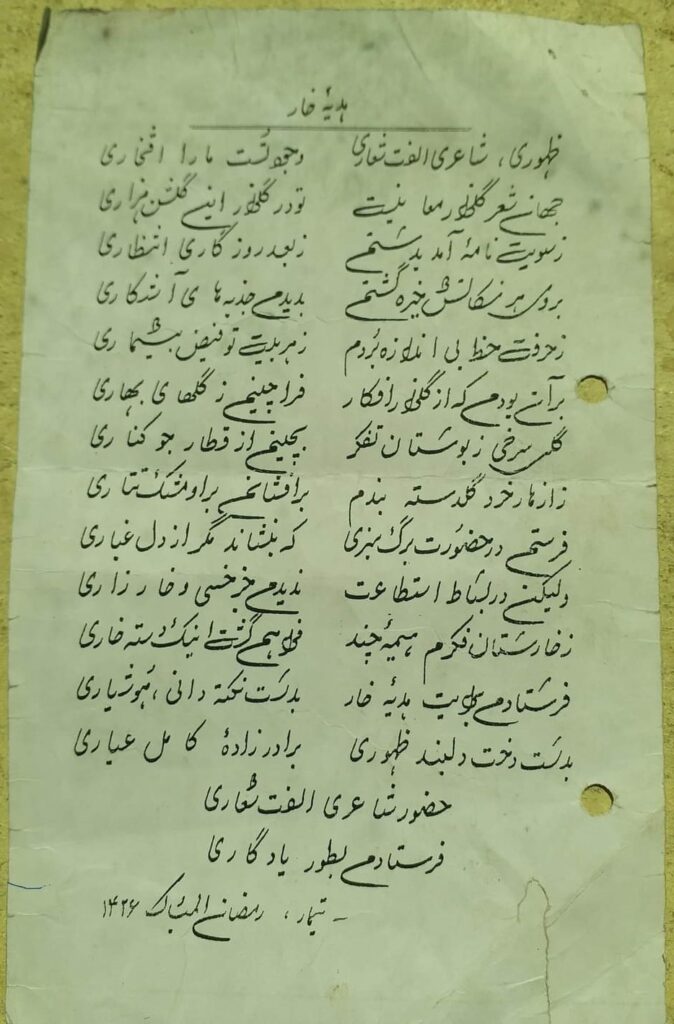 هدیهٔ خار
ظهوری، شاعری الفت شعاری وجود تست ما را افتخاری
جهان شعر گلزار معانیست تو در گلزار اینے گلشن هزاری
ز سویت نامهٔ آمد بدستم ز بعد روزگاری انتظاری
بروی هر نکاتش خیره گشتم بدیدم جذبه های آشکاری
ز حرفت حظ بی اندازه بُردم ز هر بیت تو فیض بیشماری
بر آن بودم که از گلزار افکار فرا چینم ز گلهای بهاری
گل سرخی ز بوستان تفکر بچینم از قطار جو کناری
ز ازهار خرد گلدسته بندم بر افشانم بر او مشک تتاری
فرستم در حضورت برگ سبزی که بنشاند مگر از دل غباری
ولیکن در بساط استطاعت ندیدم جز خسی و خار زاری
ز خارستان فکرم هیمهٔ چند فراهم گشت اینک دسته خاری
فرستادم برایت هدیهٔ خار بدست نکته دانی، هوشیاری
بدست دخت دلبند ظهوری برادر زادهٔ کامل عیاری
حضور شاعری الفت شعاری
فرستادم بطور یادگاری
- تیمار، رمضان المبارک ۱۴۲۶